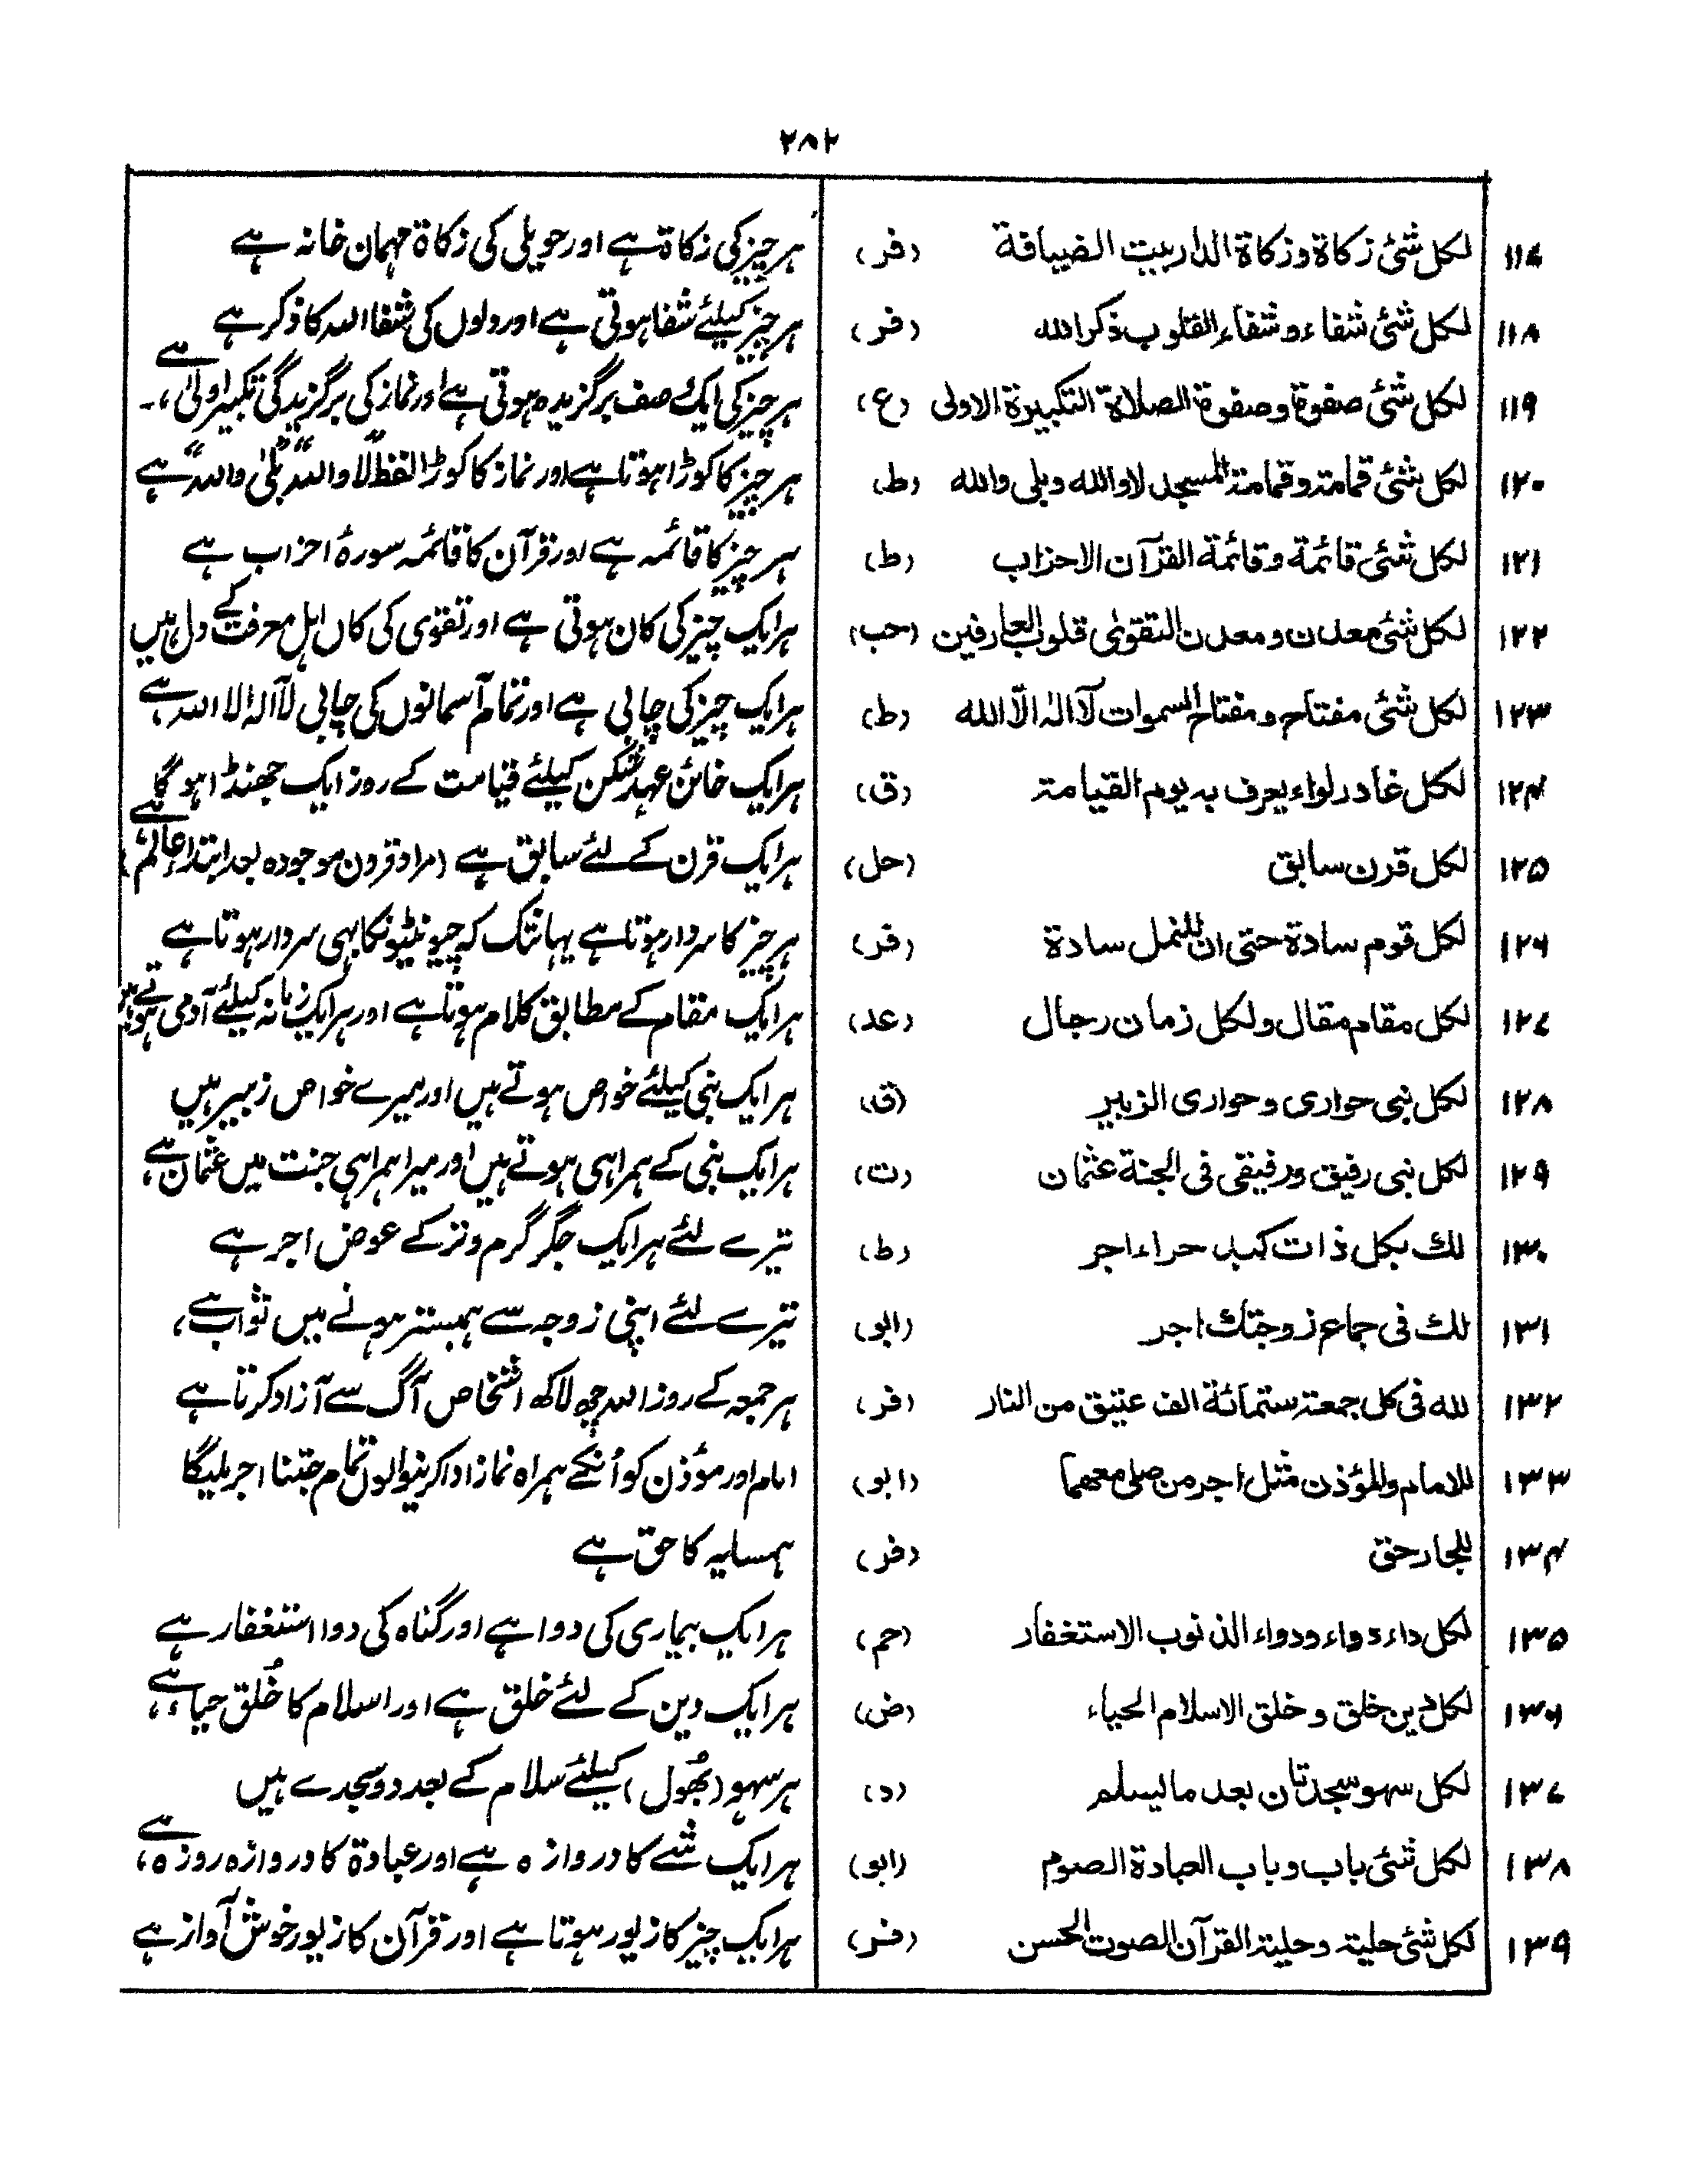 ۲۸۲
۱۱۷ لکل شئ زکاة وزکاة الدار بیت الضیافة (فر) ہر چیز کی زکاة ہے اور حویلی کی زکاة مہمان خانہ ہے
۱۱۸ لکل شئ شفاء وشفاء القلوب ذکر الله (فر) ہر چیز کیلئے شفا ہوتی ہے اور دلوں کی شفا اللہ کا ذکر ہے
۱۱۹ لکل شئ صفوة وصفوة الصلاة التکبیرة الاولی (ع) ہر چیز کی ایک صف برگزیدہ ہوتی ہے اور نماز کی برگزیدگی تکبیر اولیٰ ہے،۔
۱۲۰ لکل شئ قمامة وقمامة المسجد لا والله وبلی والله (ط) ہر چیز کا کوڑا ہوتا ہے اور نماز کا کوڑا لفظ "لا واللہ" "بلیٰ واللہ" ہے
۱۲۱ لکل شئ قائمة وقائمة القرآن الاحزاب (ط) ہر چیز کا قائمہ ہے اور قرآن کا قائمہ سورۂ احزاب ہے
۱۲۲ لکل شئ معدن ومعدن التقوٰی قلوب العارفین (حب) ہر ایک چیز کی کان ہوتی ہے اور تقوی کی کاں اہل معرفت کے دل ہیں
۱۲۳ لکل شئ مفتاح ومفتاح السموات لآ الٰہ الّا الله (ط) ہر ایک چیز کی چابی ہے اور تمام آسمانوں کی چابی لآ الٰہ الا اللہ ہے
۱۲۴ لکل غادر لواء یعرف بہ یوم القیامة (ق) ہر ایک خائن عہد شکن کیلئے قیامت کے روز ایک جھنڈا ہو گا
۱۲۵ لکل قرن سابق (حل) ہر ایک قرن کے لئے سابق ہے (مراد قرون موجودہ بعد ابتداء عالم ہے)
۱۲۶ لکل قوم سادة حتی ان للنمل سادة (فر) ہر چیز کا سردار ہوتا ہے یہانتک کہ چیونٹیونکا بہی سردار ہوتا ہے
۱۲۷ لکل مقام مقال ولکل زمان رجال (عد) ہر ایک مقام کے مطابق کلام ہوتا ہے اور ہر ایک زمانہ کیلئے آدمی ہوتے ہیں
۱۲۸ لکل نبی حواری وحواری الزبیر (ق) ہر ایک نبی کیلئے خواص ہوتے ہیں اور میرے خواص زبیر ہیں
۱۲۹ لکل نبی رفیق ورفیقی فی الجنة عثمان (ت) ہر ایک نبی کے ہمراہی ہوتے ہیں اور میرا ہمراہی جنت میں عثمان ہے،
۱۳۰ لك بکل ذات کبد حراء اجر (ط) تیرے لئے ہر ایک جگر گرم و تر کے عوض اجر ہے
۱۳۱ لك فی جماع زوجتك اجر (ابو) تیرے لئے اپنی زوجہ سے ہمبستر ہونے میں ثواب ہے،
۱۳۲ لله فی کل جمعة ستمائة الف عتیق من النار (فر) ہر جمعہ کے روز اللہ چھ لاکھ اشخاص آگ سے آزاد کرتا ہے
۱۳۳ للامام والمؤذن مثل اجر من صلی معهما (ابو) امام اور مؤذن کو اُنکے ہمراہ نماز ادا کرنیوالوں تمام جتنا اجر ملیگا
۱۳۴ للجار حق (فر) ہمسایہ کا حق ہے
۱۳۵ لکل داء دواء ودواء الذنوب الاستغفار (حم) ہر ایک بیماری کی دوا ہے اور گناہ کی دوا استغفار ہے
۱۳۶ لکل دین خلق وخلق الاسلام الحیاء (ض) ہر ایک دین کے لئے خلق ہے اور اسلام کا خُلق حیاء ہے،
۱۳۷ لکل سهو سجدتان بعد ما یسلم (د) ہر سہو (بھُول) کیلئے سلام کے بعد دو سجدے ہیں
۱۳۸ لکل شئ باب وباب العبادة الصوم (ابو) ہر ایک شے کا دروازہ ہے اور عبادة کا دروازہ روزہ ہے،
۱۳۹ لکل شئ حلیة وحلیة القرآن الصوت الحسن (فر) ہر ایک چیز کا زیور ہوتا ہے اور قرآن کا زیور خوش آواز ہے